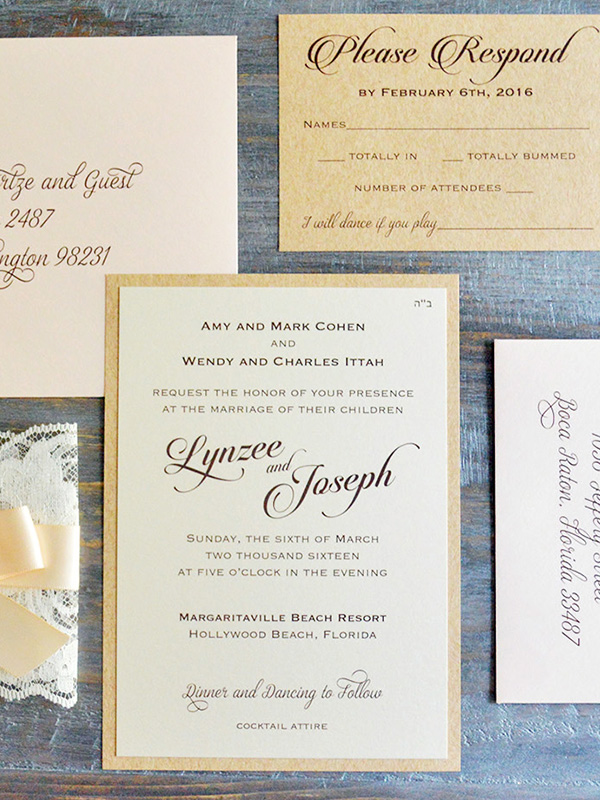 and Guest
2487
98231
Please Respond
BY FEBRUARY 6TH, 2016
NAMES
TOTALLY IN TOTALLY BUMMED
NUMBER OF ATTENDEES
I will dance if you play
ב"ה
AMY AND MARK COHEN
AND
WENDY AND CHARLES ITTAH
REQUEST THE HONOR OF YOUR PRESENCE
AT THE MARRIAGE OF THEIR CHILDREN
Lynzee
and
Joseph
SUNDAY, THE SIXTH OF MARCH
TWO THOUSAND SIXTEEN
AT FIVE O'CLOCK IN THE EVENING
MARGARITAVILLE BEACH RESORT
HOLLYWOOD BEACH, FLORIDA
Dinner and Dancing to Follow
COCKTAIL ATTIRE
Jeffery Street
Boca Raton, Florida 33487